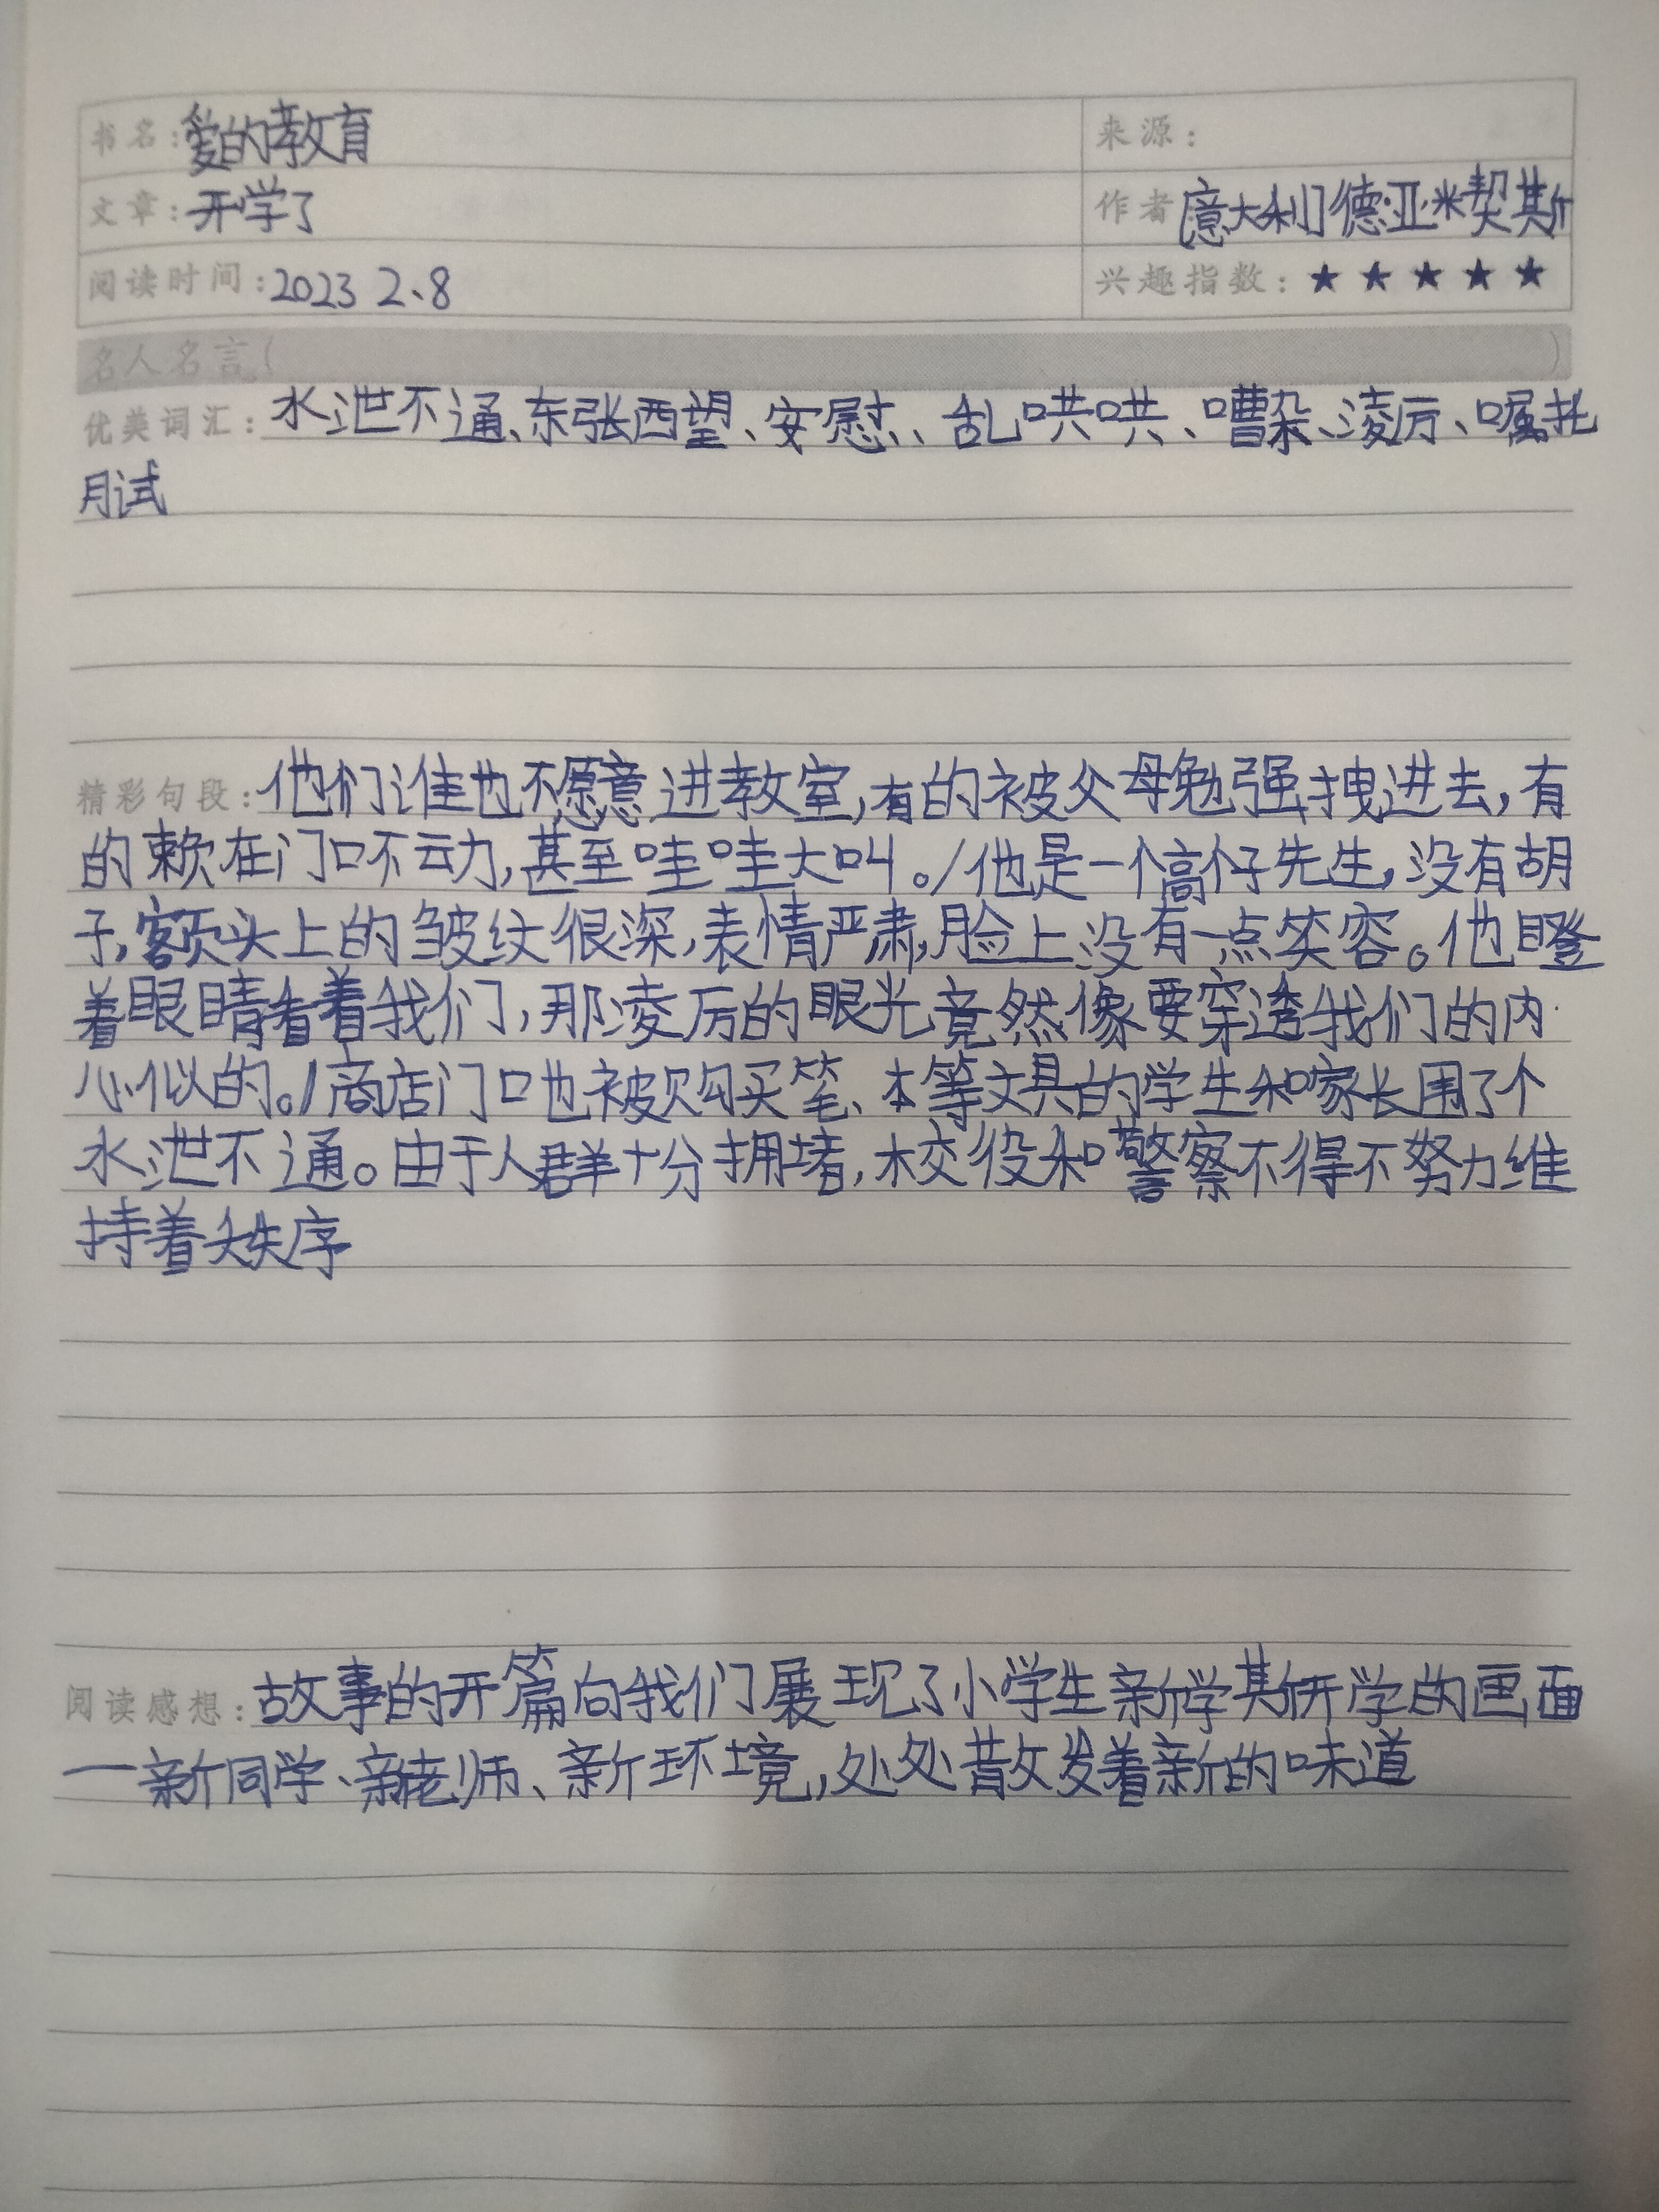 书名:爱的教育 来源:
文章:开学了 作者 意大利 德·亚米契斯
阅读时间:2023 2、8 兴趣指数:★★★★★
名人名言( )
优美词汇:水泄不通、东张西望、安慰、乱哄哄、嘈杂、凌厉、嘱托
月试
精彩句段:他们谁也不愿意进教室,有的被父母勉强拽进去,有
的赖在门口不动,甚至哇哇大叫。/他是一个高个子先生,没有胡
子,额头上的皱纹很深,表情严肃,脸上没有一点笑容。他瞪
着眼睛看着我们,那凌厉的眼光竟然像要穿透我们的内
心似的。/商店门口也被购买笔、本等文具的学生和家长围了个
水泄不通。由于人群十分拥堵,校役和警察不得不努力维
持着秩序
阅读感想:故事的开篇向我们展现了小学生新学期开学的画面
一新同学、新老师、新环境,处处散发着新的味道